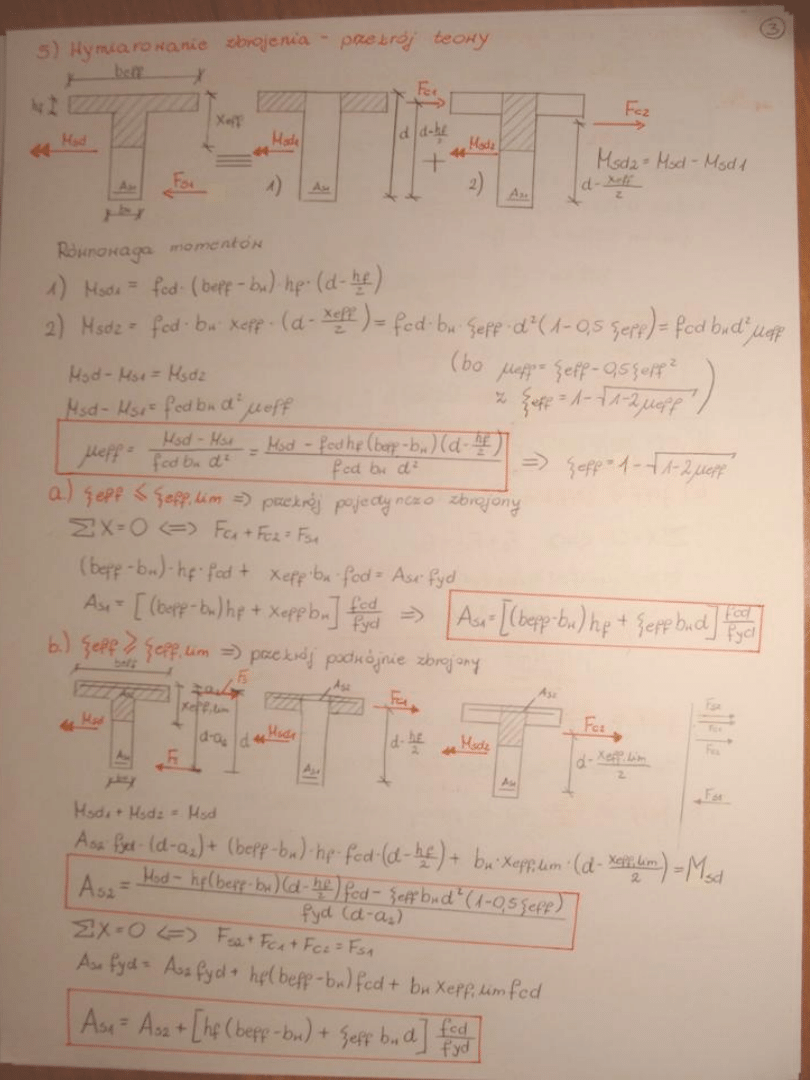 3
5) Wymiarowanie zbrojenia - przekrój teowy
beff
hf
xeff
Msd
Fs1
As1
bw
1)
Msd1
As1
d
d-hf/2
Fc1
+
2)
Msd2
As1
Fc2
d-xeff/2
Msd2 = Msd - Msd1
Równowaga momentów
1) Msd1 = fcd·(beff-bw)·hf·(d-hf/2)
2) Msd2 = fcd·bw·xeff·(d-xeff/2) = fcd·bw·ξeff·d²(1-0,5ξeff) = fcd bw d² μeff
Msd - Ms1 = Msd2
(bo μeff = ξeff - 0,5ξeff²
Msd - Ms1 = fcd bw d² μeff
z ξeff = 1-√1-2μeff)
μeff = (Msd - Ms1)/(fcd bw d²) = (Msd - fcd hf (beff-bw)(d-hf/2))/(fcd bw d²) => ξeff = 1-√1-2μeff
a) ξeff ≤ ξeff,lim => przekrój pojedynczo zbrojony
ΣX=0 <=> Fc1 + Fc2 = Fs1
(beff-bw)·hf·fcd + xeff·bw·fcd = As1·fyd
As1 = [(beff-bw)hf + xeff bw] fcd/fyd => As1 = [(beff-bw)hf + ξeff bw d] fcd/fyd
b) ξeff ≥ ξeff,lim => przekrój podwójnie zbrojony
beff
xeff,lim
d-a2
d
Msd
As1
bw
As2
Fc1
Msd1
d-hf/2
As1
As2
Fc2
Msd2
d-xeff,lim/2
As1
Fs2
Fc1
Fc2
Fs1
Msd1 + Msd2 = Msd
As2·fyd·(d-a2) + (beff-bw)·hf·fcd·(d-hf/2) + bw·xeff,lim·(d-xeff,lim/2) = Msd
As2 = (Msd - hf(beff-bw)(d-hf/2)fcd - ξeff bw d²(1-0,5ξeff))/(fyd (d-a2))
ΣX=0 <=> Fs2 + Fc1 + Fc2 = Fs1
As1 fyd = As2 fyd + hf(beff-bw)fcd + bw xeff,lim fcd
As1 = As2 + [hf(beff-bw) + ξeff bw d] fcd/fyd